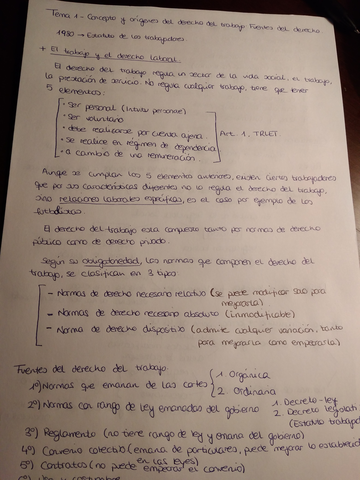 Tema 1 - Concepto y orígenes del derecho del trabajo. Fuentes del derecho
1980 → Estatuto de los trabajadores
+ El trabajo y el derecho laboral.
El derecho del trabajo regula un sector de la vida social: el trabajo,
la prestación de servicio. No regula cualquier trabajo, tiene que tener
5 elementos:
- Ser personal (Intuitu personae)
- Ser voluntario
- debe realizarse por cuenta ajena.
- se realice en régimen de dependencia
- a cambio de una remuneración.
Art. 1, TRLET
Aunque se cumplan los 5 elementos anteriores, existen ciertos trabajadores
que por sus características diferentes no lo regula el derecho del trabajo,
sino relaciones laborales específicas, es el caso por ejemplo de los
futbolistas
El derecho del trabajo esta compuesto tanto por normas de derecho
público como de derecho privado.
Según su obligatoriedad, las normas que componen el derecho del
trabajo, se clasifican en 3 tipos
- Normas de derecho necesario relativo (se puede modificar solo para
mejorarla)
- Normas de derecho necesario absoluto (inmodificable)
- Norma de derecho dispositivo (admite cualquier variación, tanto
para mejorarla como empeorarla)
Fuentes del derecho del trabajo.
1º) Normas que emanan de las cortes
1. Orgánica
2. Ordinaria
2º) Normas con rango de ley emanadas del gobierno
1. Decreto-ley
2. Decreto legislati
(Estatuto trabajad
3º) Reglamento (no tiene rango de ley y emana del gobierno)
4º) Convenio colectivo (emana de particulares, puede mejorar lo establecid
en las leyes)
5º) Contratos (no puede empeorar el convenio)